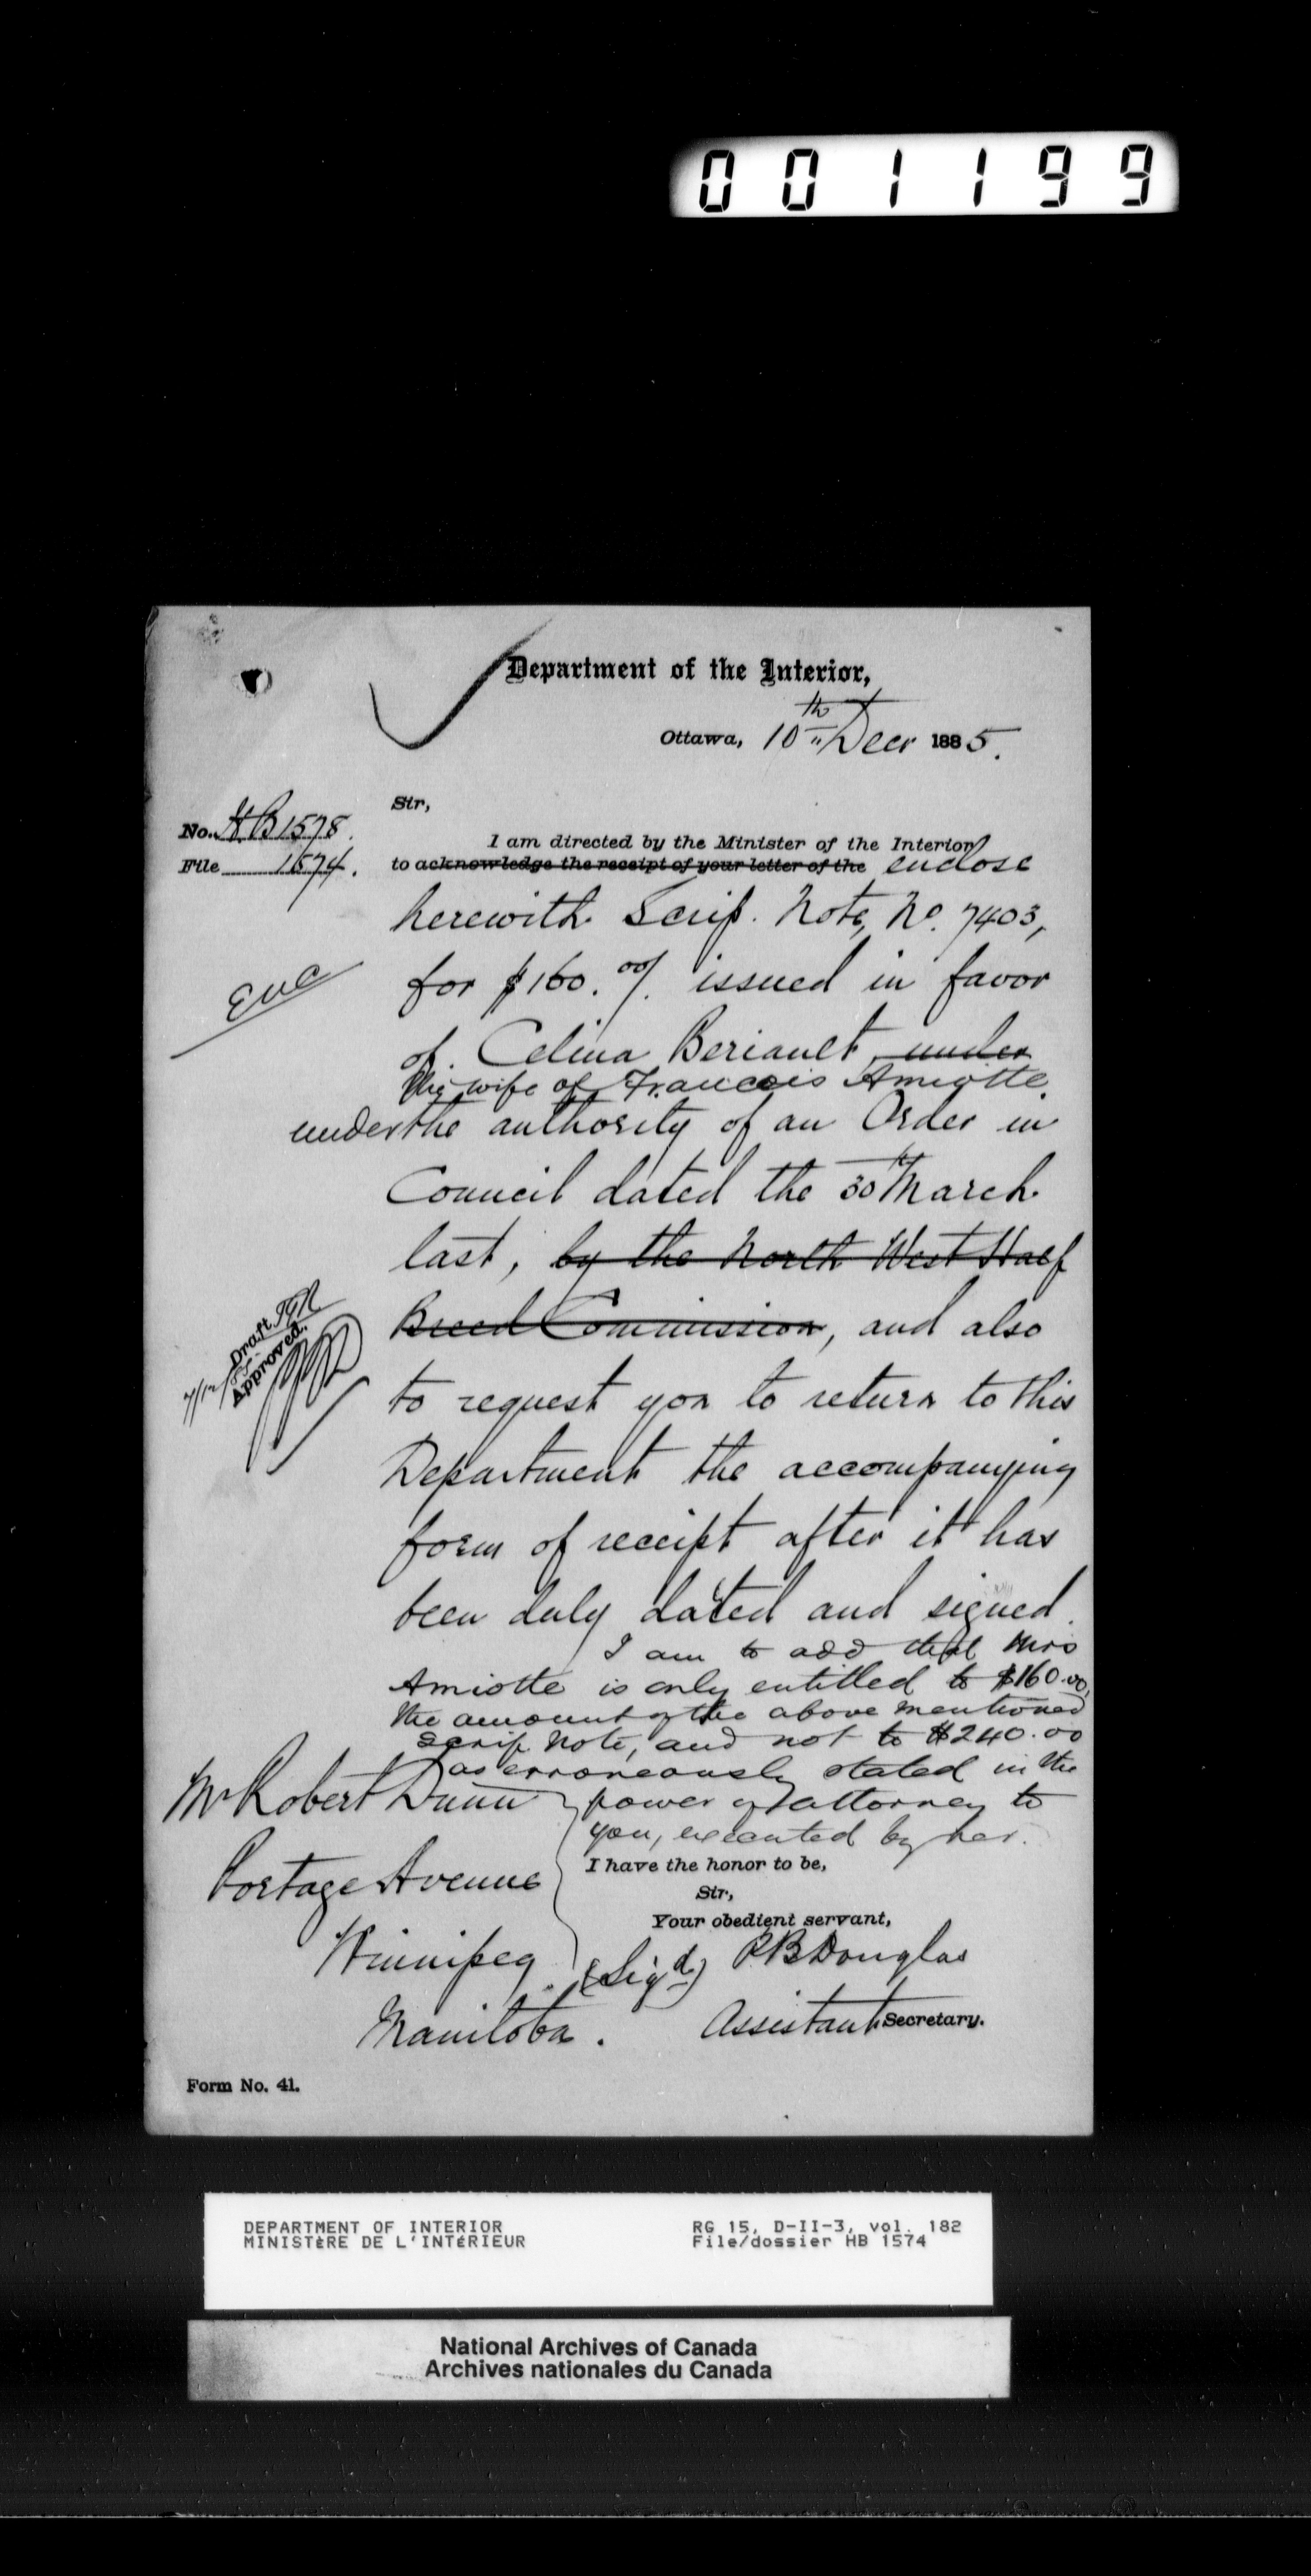 001199
Department of the Interior,
Ottawa, 10th Decr 1885.
Sir,
No. HB 1578.
File 1574.
I am directed by the Minister of the Interior
to acknowledge the receipt of your letter of the enclose
herewith Scrip Note, No. 7403,
for $160.00/. issued in favor
of Celina Beriault, under
the wife of Francois Amiotte
under the authority of an Order in
Council dated the 30th March
last, by the North West Half
Breed Commission, and also
to request you to return to this
Department the accompanying
form of receipt after it has
been duly dated and signed.
Draft
Approved.
I am to add that Mrs
Amiotte is only entitled to $160.00,
the amount of the above mentioned
scrip note, and not to $240.00
as erroneously stated in the
power of attorney to
you, executed by her.
Mr Robert Dunn
Portage Avenue
Winnipeg.
Manitoba.
I have the honor to be,
Sir,
Your obedient servant,
(Sigd) P.B. Douglas
Assistant Secretary.
Form No. 41.
DEPARTMENT OF INTERIOR
MINISTèRE DE L'INTéRIEUR
RG 15, D-II-3, vol. 182
File/dossier HB 1574
National Archives of Canada
Archives nationales du Canada